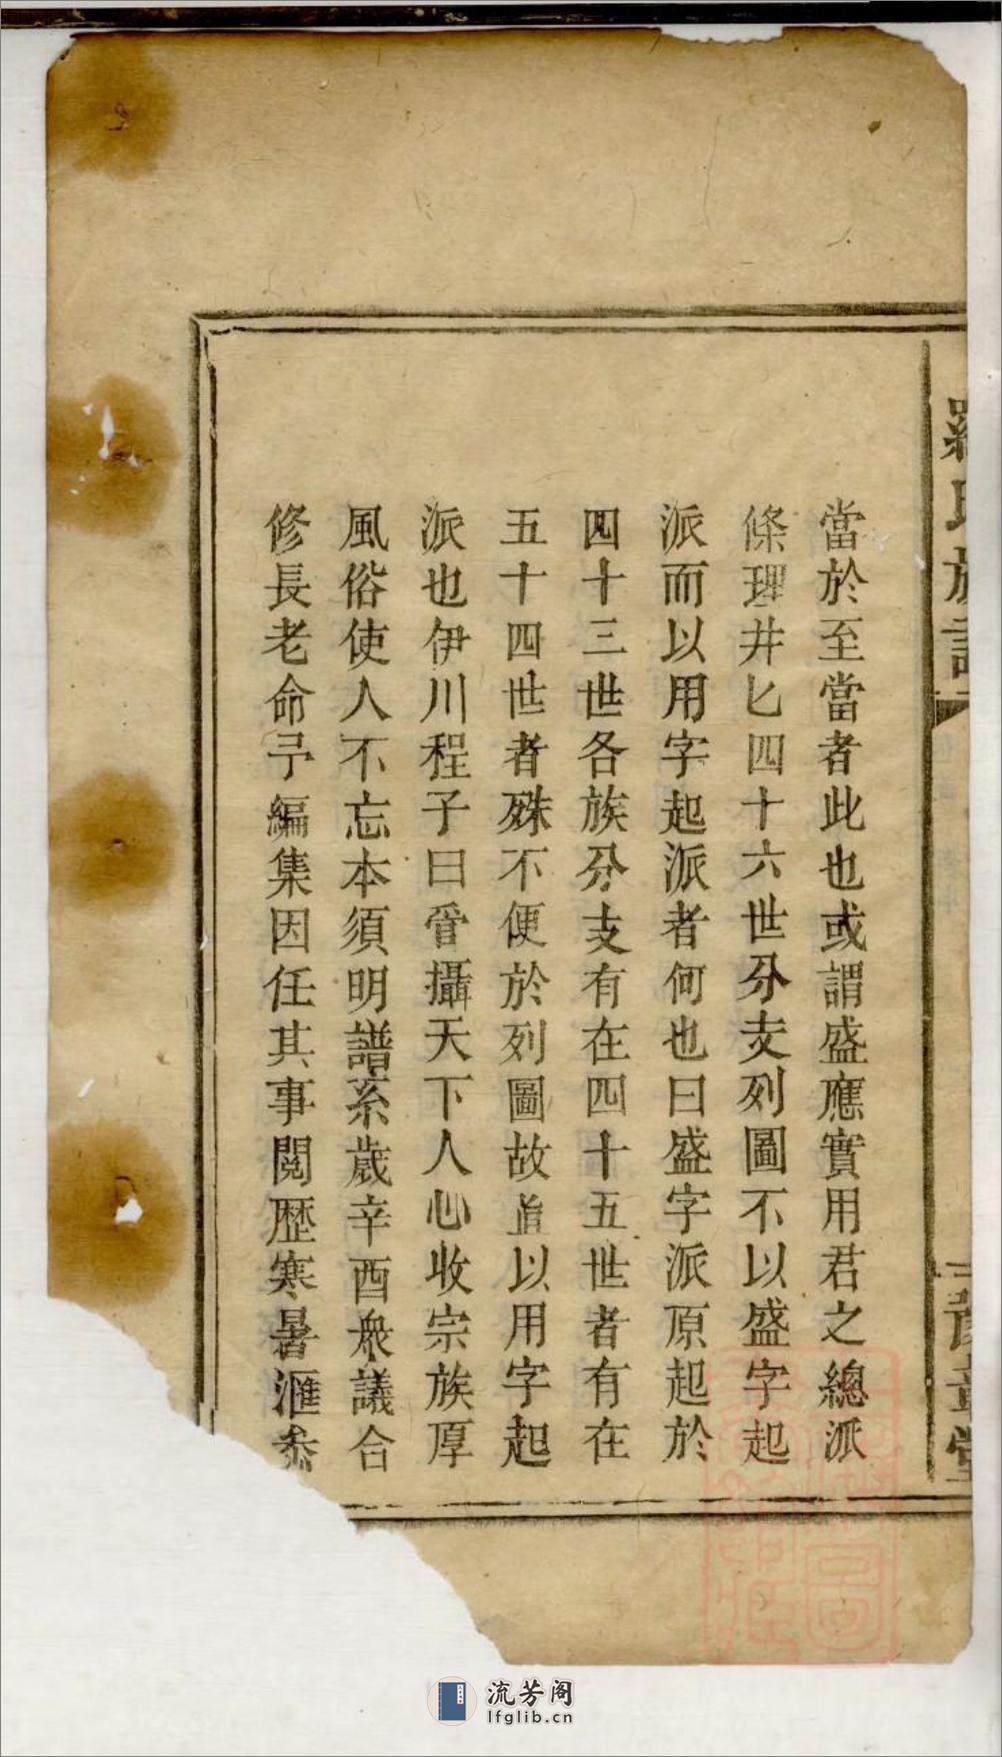 當於至當者此也或謂盛應實用君之總派
條理井匕四十六世分支列圖不以盛字起
派而以用字起派者何也曰盛字派原起於
四十三世各族分支有在四十五世者有在
五十四世者殊不便於列圖故直以用字起
派也伊川程子曰管攝天下人心收宗族厚
風俗使人不忘本須明譜系歲辛酉衆議合
修長老命予編集因任其事閱歷寒暑滙叅
羅氏族譜
豫章堂
流芳阁
lfglib.cn